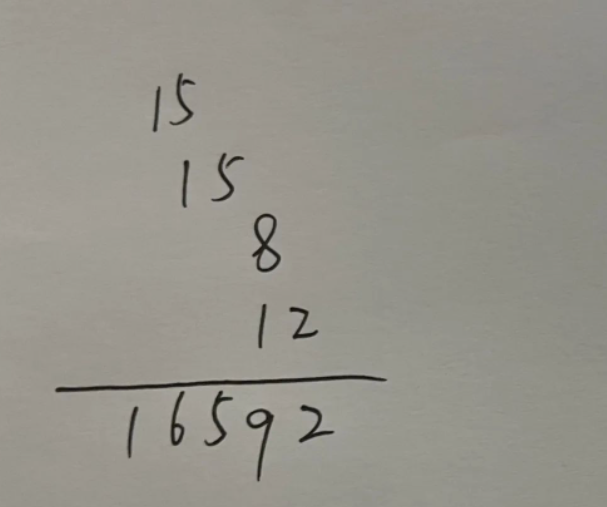 15
15
8
12
16592